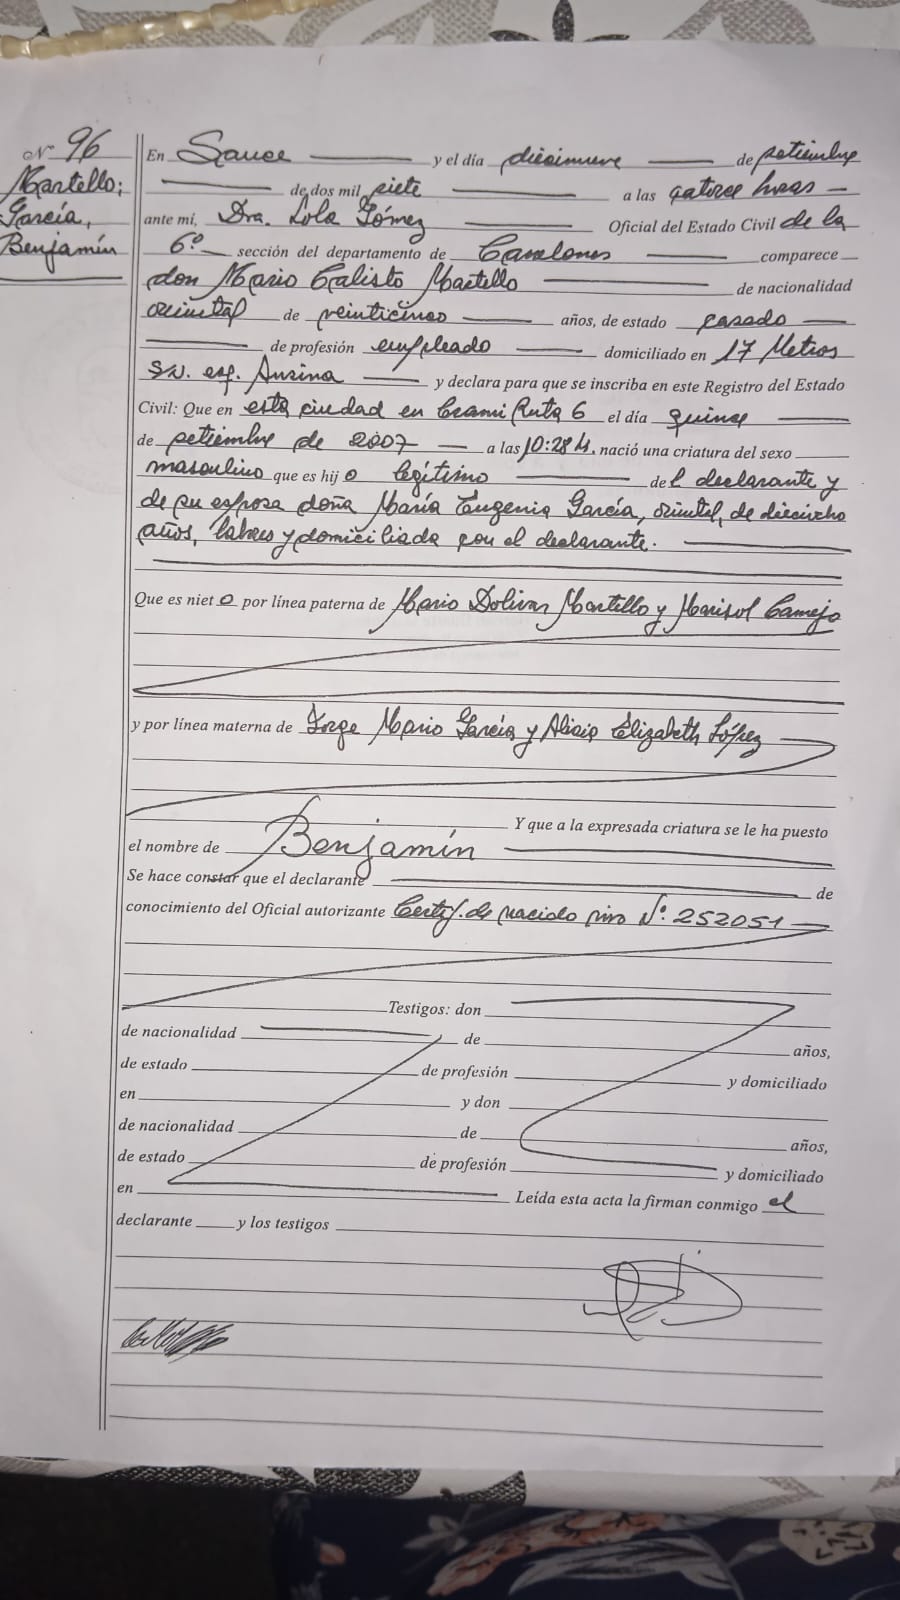 Nº 96
Martello;
García,
Benjamín
En Sauce y el día diecinueve de setiembre
de dos mil siete a las catorce horas
ante mi, Dra. Lola Gómez Oficial del Estado Civil de la
6º sección del departamento de Canelones comparece
don Mario Calisto Martello de nacionalidad
oriental de veinticinco años, de estado casado
de profesión empleado domiciliado en 17 Metros
S/N. esq. Ansina y declara para que se inscriba en este Registro del Estado
Civil: Que en esta ciudad en Crami Ruta 6 el día quince
de setiembre de 2007 a las 10:28 H. nació una criatura del sexo
masculino que es hijo legítimo del declarante y
de su esposa doña María Eugenia García, oriental, de dieciocho
años, labores y domiciliada con el declarante.
Que es nieto por línea paterna de Mario Martello y Marisol Camejo
y por línea materna de Jorge Mario García y Alicia Elizabeth López
Y que a la expresada criatura se le ha puesto
el nombre de Benjamín
Se hace constar que el declarante de
conocimiento del Oficial autorizante Certif. de nacido vivo Nº 252051
Testigos: don
de nacionalidad de años,
de estado de profesión y domiciliado
en y don
de nacionalidad de años,
de estado de profesión y domiciliado
en Leída esta acta la firman conmigo el
declarante y los testigos